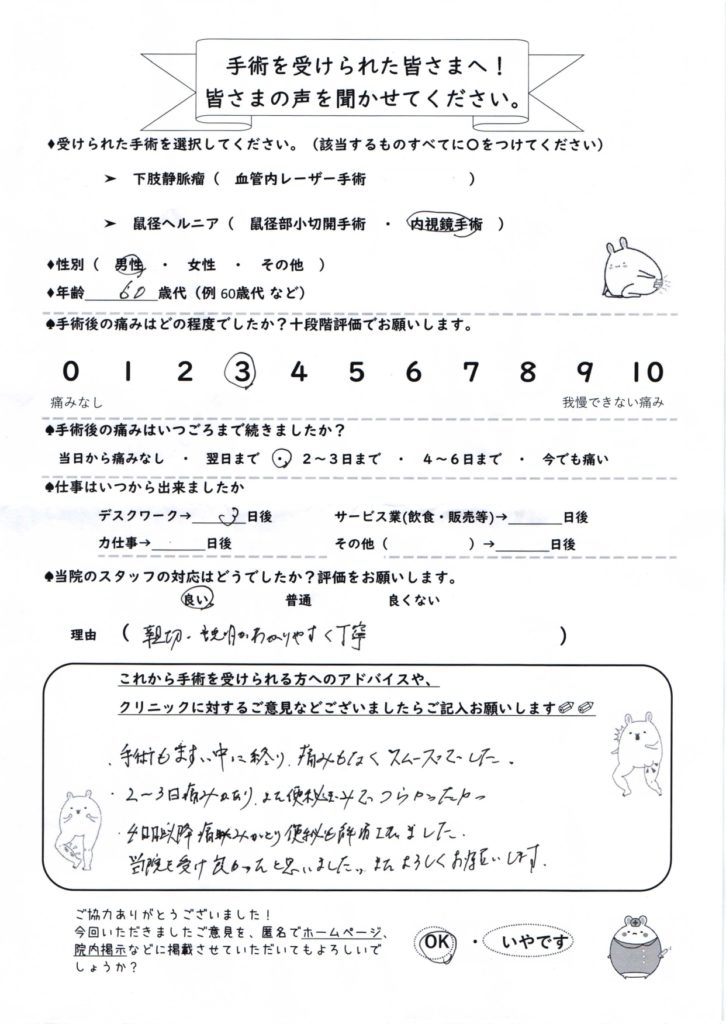 手術を受けられた皆さまへ！
皆さまの声を聞かせてください。
♦受けられた手術を選択してください。（該当するものすべてに〇をつけてください）
➤ 下肢静脈瘤（ 血管内レーザー手術 ）
➤ 鼠径ヘルニア（ 鼠径部小切開手術 ・ 内視鏡手術 ）
♦性別（ 男性 ・ 女性 ・ その他 ）
♦年齢 60 歳代（例 60歳代 など）
♠手術後の痛みはどの程度でしたか？十段階評価でお願いします。
0 1 2 3 4 5 6 7 8 9 10
痛みなし 我慢できない痛み
♠手術後の痛みはいつごろまで続きましたか？
当日から痛みなし ・ 翌日まで ・ 2～3日まで ・ 4～6日まで ・ 今でも痛い
♠仕事はいつから出来ましたか
デスクワーク→ 3 日後 サービス業(飲食・販売等)→ 日後
力仕事→ 日後 その他（ ）→ 日後
♠当院のスタッフの対応はどうでしたか？評価をお願いします。
良い 普通 良くない
理由 （ 親切・説明がわかりやすく丁寧 ）
これから手術を受けられる方へのアドバイスや、
クリニックに対するご意見などございましたらご記入お願いします
・手術もますい中に終り、痛みもなくスムーズでした。
・2～3日痛みがあり、また便秘 つらかった
・4日以降痛みがとり便秘も ました。
当院を受け良かったと思いました。またよろしくお願いします。
ご協力ありがとうございました！
今回いただきましたご意見を、匿名でホームページ、
院内掲示などに掲載させていただいてもよろしいで
しょうか？
OK ・ いやです